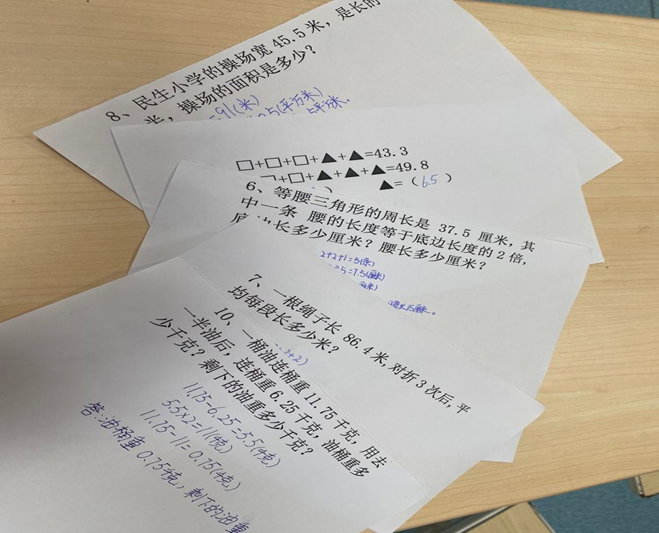 8、民生小学的操场宽 45.5 米，是长的
米，操场的面积是多少？
=91(米)
5(平方米)
平方米.
□+□+□+▲+▲=43.3
□+▲+▲+▲=49.8
▲=（6.5）
6、等腰三角形的周长是 37.5 厘米，其
中一条 腰的长度等于底边长度的 2 倍，
长多少厘米？腰长多少厘米？
2+2+1=5(条)
÷5=7.5(厘米)
7、一根绳子长 86.4 米，对折 3 次后，平
均每段长多少米？
10、一桶油连桶重 11.75 千克，用去
一半油后，连桶重 6.25 千克，油桶重多
少千克？剩下的油重多少千克？
11.75-6.25=5.5(千克)
5.5×2=11(千克)
11.75-11=0.75(千克)
答:油桶重 0.75千克，剩下的油重